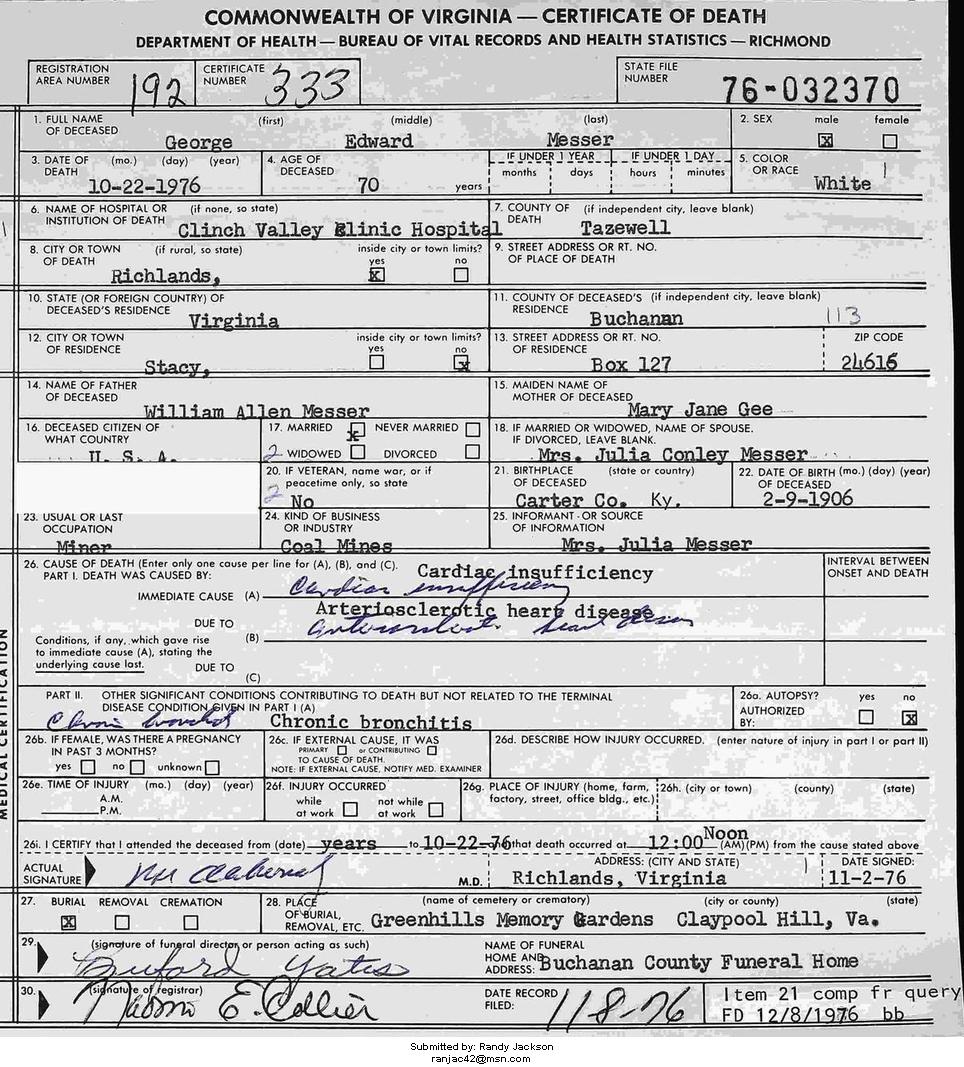 COMMONWEALTH OF VIRGINIA — CERTIFICATE OF DEATH
DEPARTMENT OF HEALTH — BUREAU OF VITAL RECORDS AND HEALTH STATISTICS — RICHMOND
REGISTRATION AREA NUMBER 192 CERTIFICATE NUMBER 333 STATE FILE NUMBER 76-032370
1. FULL NAME OF DECEASED (first) (middle) (last) 2. SEX male female
George Edward Messer X
3. DATE OF DEATH (mo.) (day) (year) 4. AGE OF DECEASED IF UNDER 1 YEAR IF UNDER 1 DAY 5. COLOR OR RACE
10-22-1976 70 years months days hours minutes White
6. NAME OF HOSPITAL OR INSTITUTION OF DEATH (if none, so state) 7. COUNTY OF DEATH (if independent city, leave blank)
Clinch Valley Clinic Hospital Tazewell
8. CITY OR TOWN OF DEATH (if rural, so state) inside city or town limits? yes no 9. STREET ADDRESS OR RT. NO. OF PLACE OF DEATH
Richlands, X
10. STATE (OR FOREIGN COUNTRY) OF DECEASED'S RESIDENCE 11. COUNTY OF DECEASED'S RESIDENCE (if independent city, leave blank)
Virginia Buchanan 113
12. CITY OR TOWN OF RESIDENCE inside city or town limits? yes no 13. STREET ADDRESS OR RT. NO. OF RESIDENCE ZIP CODE
Stacy, X Box 127 24616
14. NAME OF FATHER OF DECEASED 15. MAIDEN NAME OF MOTHER OF DECEASED
William Allen Messer Mary Jane Gee
16. DECEASED CITIZEN OF WHAT COUNTRY 17. MARRIED X NEVER MARRIED 18. IF MARRIED OR WIDOWED, NAME OF SPOUSE. IF DIVORCED, LEAVE BLANK.
U. S. A. 2 WIDOWED DIVORCED Mrs. Julia Conley Messer
20. IF VETERAN, name war, or if peacetime only, so state 21. BIRTHPLACE OF DECEASED (state or country) 22. DATE OF BIRTH (mo.) (day) (year) OF DECEASED
2 No Carter Co. Ky. 2-9-1906
23. USUAL OR LAST OCCUPATION 24. KIND OF BUSINESS OR INDUSTRY 25. INFORMANT OR SOURCE OF INFORMATION
Miner Coal Mines Mrs. Julia Messer
MEDICAL CERTIFICATION
26. CAUSE OF DEATH (Enter only one cause per line for (A), (B), and (C). INTERVAL BETWEEN ONSET AND DEATH
PART I. DEATH WAS CAUSED BY: Cardiac insufficiency
IMMEDIATE CAUSE (A) Cardiac insufficiency
Arteriosclerotic heart disease
DUE TO (B) Arteriosclerotic heart disease
Conditions, if any, which gave rise to immediate cause (A), stating the underlying cause last.
DUE TO (C)
PART II. OTHER SIGNIFICANT CONDITIONS CONTRIBUTING TO DEATH BUT NOT RELATED TO THE TERMINAL DISEASE CONDITION GIVEN IN PART I (A) 26a. AUTOPSY? yes no
Chronic bronchitis Chronic bronchitis AUTHORIZED BY: X
26b. IF FEMALE, WAS THERE A PREGNANCY IN PAST 3 MONTHS? 26c. IF EXTERNAL CAUSE, IT WAS 26d. DESCRIBE HOW INJURY OCCURRED. (enter nature of injury in part I or part II)
yes no unknown PRIMARY or CONTRIBUTING TO CAUSE OF DEATH.
NOTE: IF EXTERNAL CAUSE, NOTIFY MED. EXAMINER
26e. TIME OF INJURY (mo.) (day) (year) 26f. INJURY OCCURRED 26g. PLACE OF INJURY (home, farm, factory, street, office bldg., etc.) 26h. (city or town) (county) (state)
A.M. P.M. while at work not while at work
26i. I CERTIFY that I attended the deceased from (date) years to 10-22-76 and that death occurred at 12:00 Noon (AM)(PM) from the cause stated above
ACTUAL SIGNATURE M.D. ADDRESS: (CITY AND STATE) DATE SIGNED:
Richlands, Virginia 11-2-76
27. BURIAL REMOVAL CREMATION 28. PLACE OF BURIAL, REMOVAL, ETC. (name of cemetery or crematory) (city or county) (state)
X Greenhills Memory Gardens Claypool Hill, Va.
29. (signature of funeral director or person acting as such) NAME OF FUNERAL HOME AND ADDRESS:
Buford Yates Buchanan County Funeral Home
30. (signature of registrar) DATE RECORD FILED: 11-8-76 Item 21 comp fr query
Naomi E. Collier FD 12/8/1976 bb
Submitted by: Randy Jackson
ranjac42@msn.com